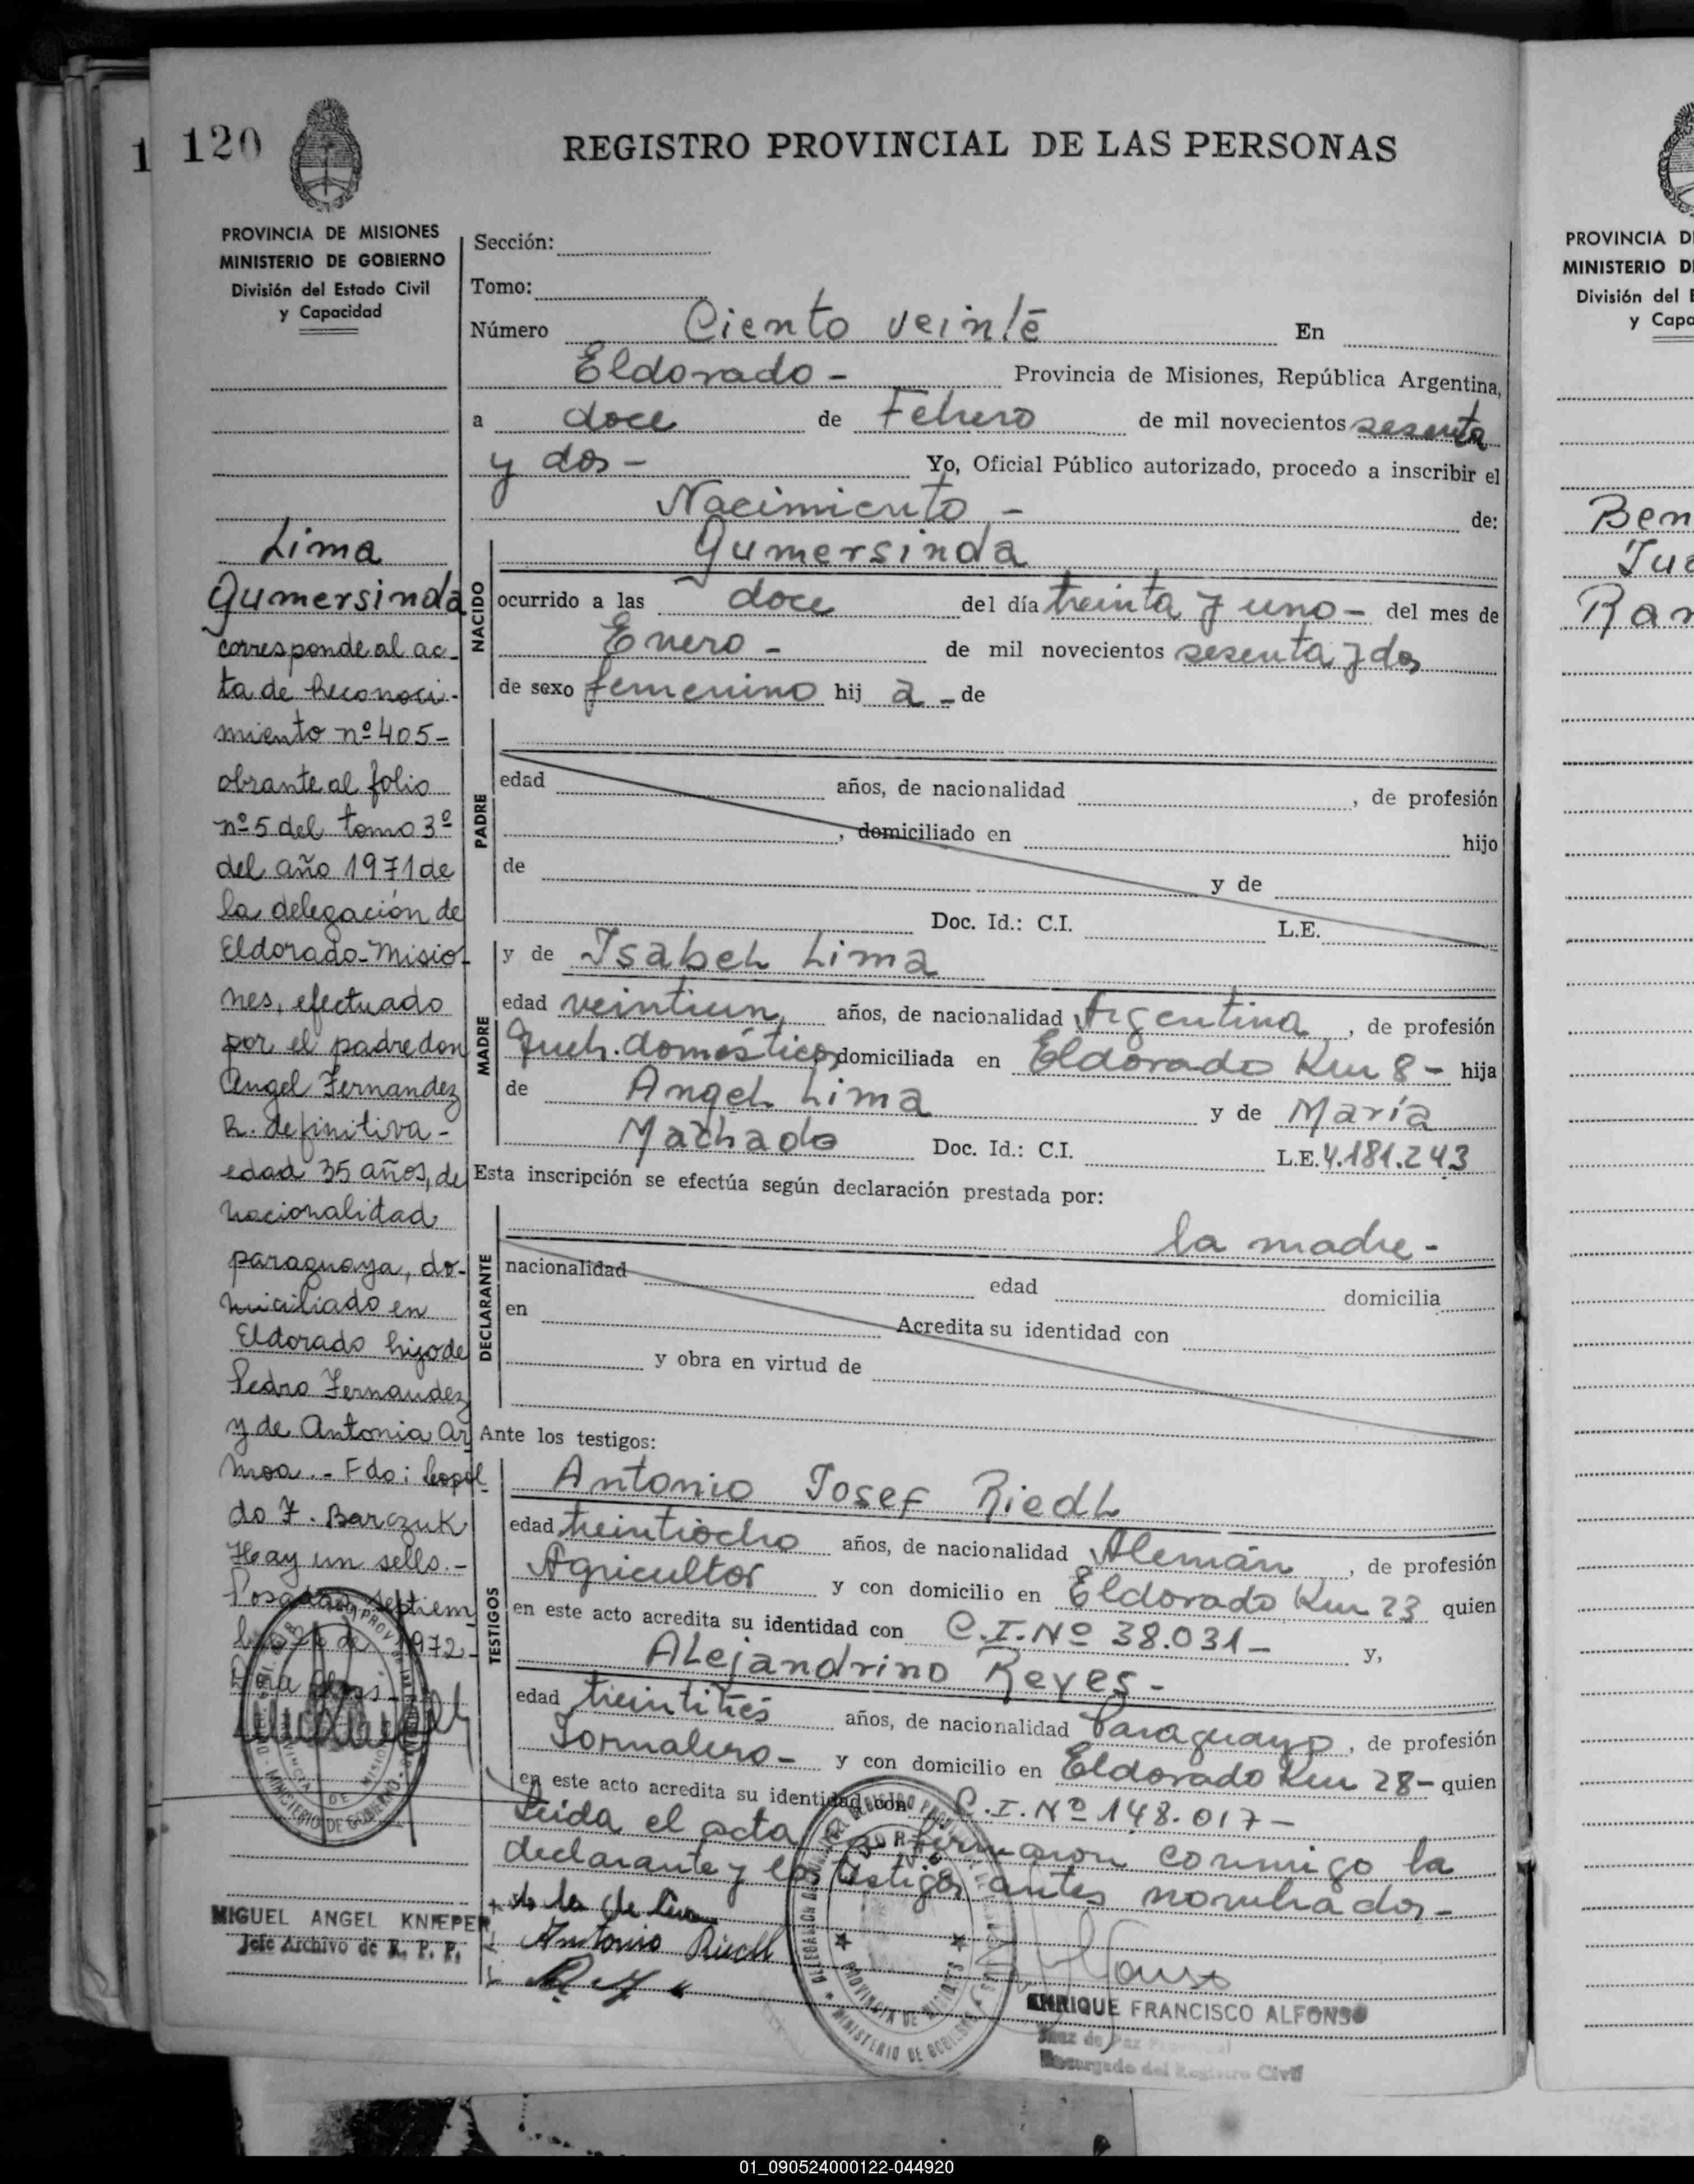 1
120
REGISTRO PROVINCIAL DE LAS PERSONAS
PROVINCIA DE MISIONES
MINISTERIO DE GOBIERNO
División del Estado Civil
y Capacidad
Lima
Gumersinda
corresponde al ac-
ta de Reconoci-
miento nº 405-
obrante al folio
nº 5 del tomo 3º
del año 1971 de
la delegación de
Eldorado-Misio-
nes, efectuado
por el padre don
Angel Fernandez
R. definitiva-
edad 35 años, de
nacionalidad
paraguaya, do-
miciliado en
Eldorado hijo de
Pedro Fernandez
y de Antonia Ar
moa.- Fdo: Leopol-
do F. Barczuk
Hay un sello.-
Posadas, septiem
1972-
MINISTERIO DE GOBIERNO
PROVINCIA DE MISIONES
MIGUEL ANGEL KNIEPER
Jefe Archivo de R. P. P.
Sección:
Tomo:
Número Ciento veinte En
Eldorado - Provincia de Misiones, República Argentina,
a doce de Febrero de mil novecientos sesenta
y dos - Yo, Oficial Público autorizado, procedo a inscribir el
Nacimiento - de:
NACIDO
Gumersinda
ocurrido a las doce del día treinta y uno - del mes de
Enero - de mil novecientos sesenta y dos
de sexo femenino hij a - de
PADRE
edad años, de nacionalidad , de profesión
, domiciliado en hijo
de y de
Doc. Id.: C.I. L.E.
MADRE
y de Isabel Lima
edad veintiun años, de nacionalidad Argentina , de profesión
Queh. domésticos, domiciliada en Eldorado Km 8 - hija
de Angel Lima y de María
Machado Doc. Id.: C.I. L.E. 4.181.243
Esta inscripción se efectúa según declaración prestada por:
DECLARANTE
la madre -
nacionalidad edad domicilia
en Acredita su identidad con
y obra en virtud de
Ante los testigos:
TESTIGOS
Antonio Josef Riedl
edad treintiocho años, de nacionalidad Alemán , de profesión
Agricultor y con domicilio en Eldorado Km 23 quien
en este acto acredita su identidad con C.I. Nº 38.031- y,
Alejandrino Reyes -
edad treintitrés años, de nacionalidad Paraguayo , de profesión
Jornalero - y con domicilio en Eldorado Km 28 - quien
en este acto acredita su identidad con C.I. Nº 148.017-
Leida el acta la firmaron conmigo la
declarante y los testigos antes nombrados -
Antonio Riedl
PROVINCIA DE MISIONES
MINISTERIO DE GOBIERNO
ENRIQUE FRANCISCO ALFONSO
Juez de Paz
Encargado del Registro Civil
PROVINCIA D
MINISTERIO D
División del E
y Capa
Ben
Jua
Ram
01_090524000122-044920